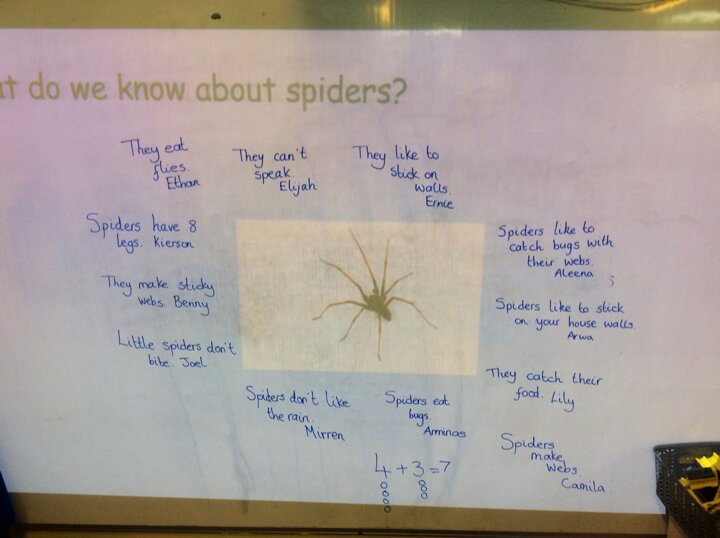 at do we know about spiders?
They eat
flies.
Ethan
They can't
speak.
Elijah
They like to
stick on
walls.
Ernie
Spiders have 8
legs. Kierson
They make sticky
webs. Benny
Little spiders don't
bite. Joel
Spiders like to
catch bugs with
their webs.
Aleena
Spiders like to stick
on your house walls.
Arwa
They catch their
food. Lily
Spiders don't like
the rain.
Mirren
Spiders eat
bugs.
Arminas
Spiders
make
webs.
Camila
4+3=7